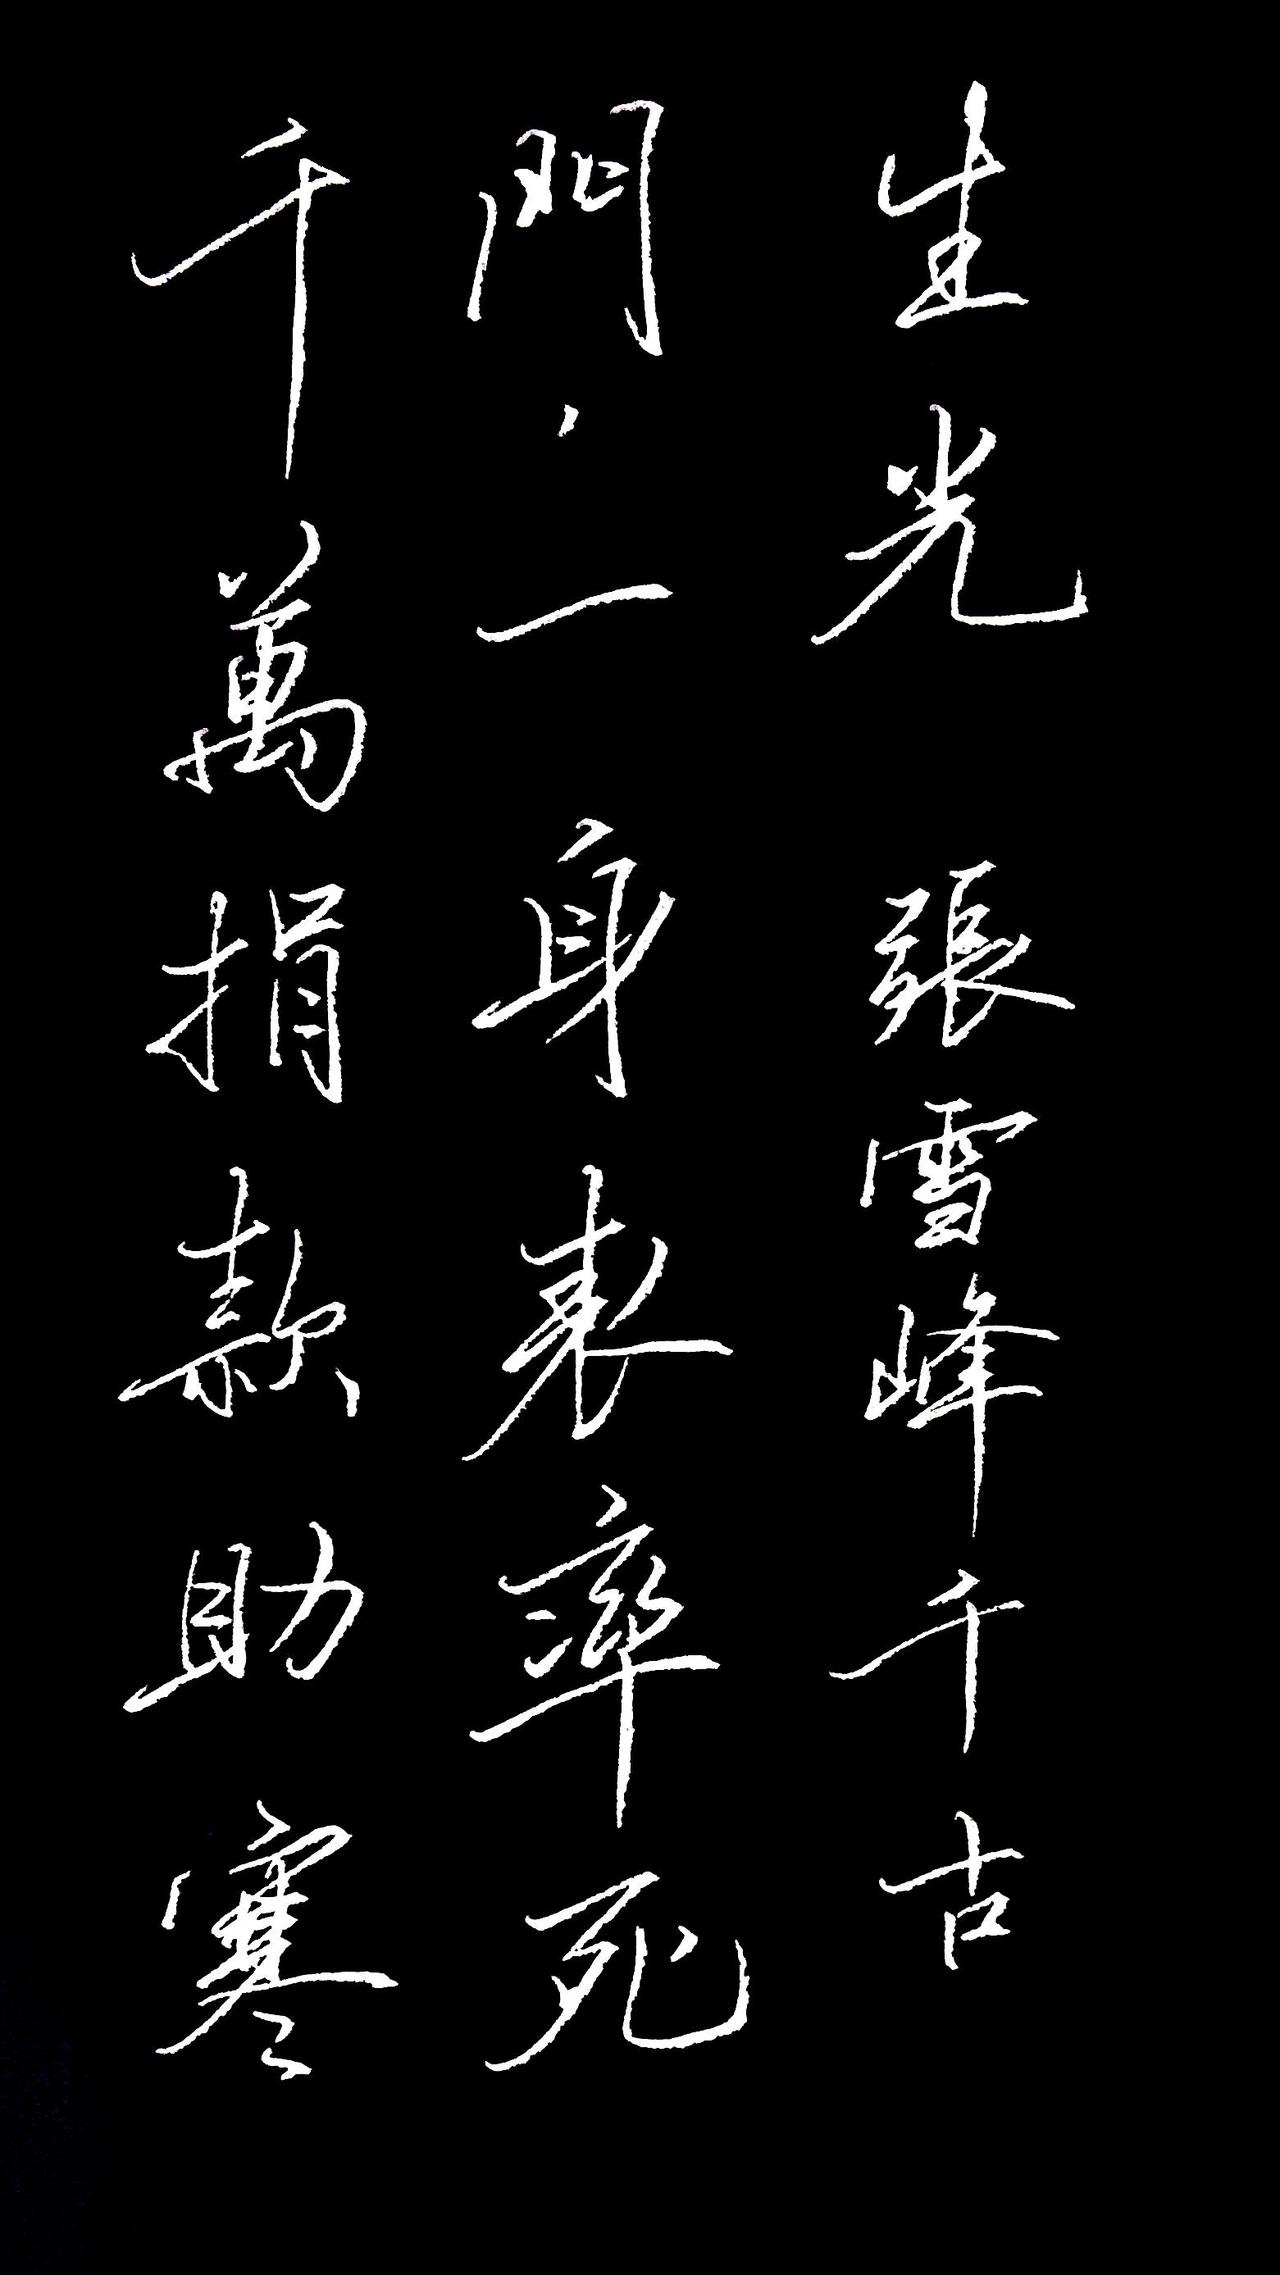 千萬捐款助寒
門，一身表率死
生光 張雪峰千古